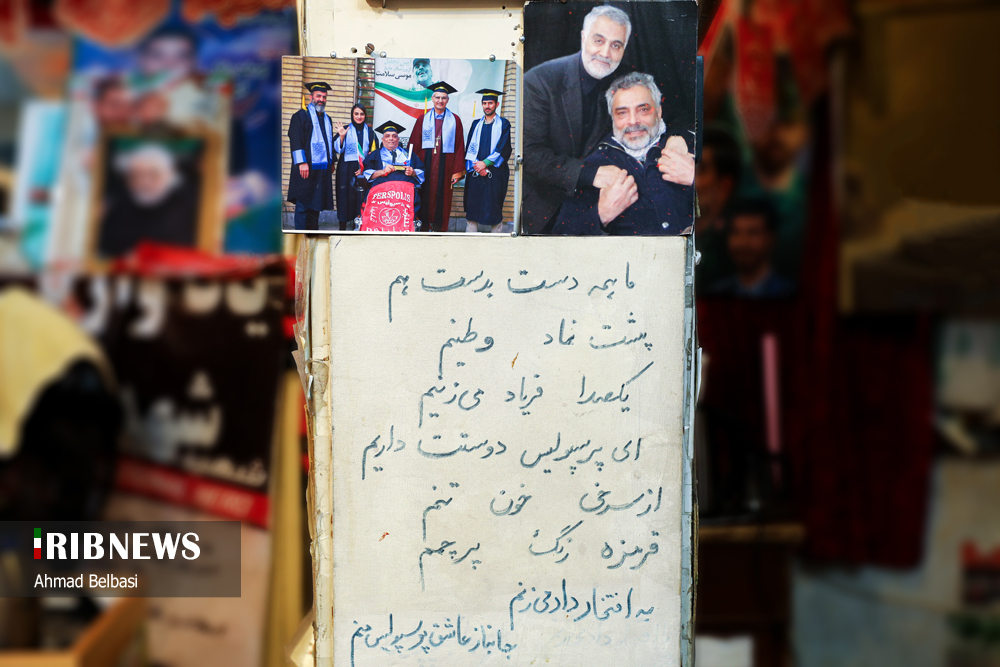 موسی سلامت
PERSPOLIS
ما همه دست بدست هم
پشت نماد وطنیم
یکصدا فریاد می‌زنیم
ای پرسپولیس دوستت داریم
از سرخی خون تنم
قرمزه رنگ پرچمم
به افتخار داد می‌زنم
جانباز عاشق پرسپولیس منم
IRIBNEWS
Ahmad Belbasi